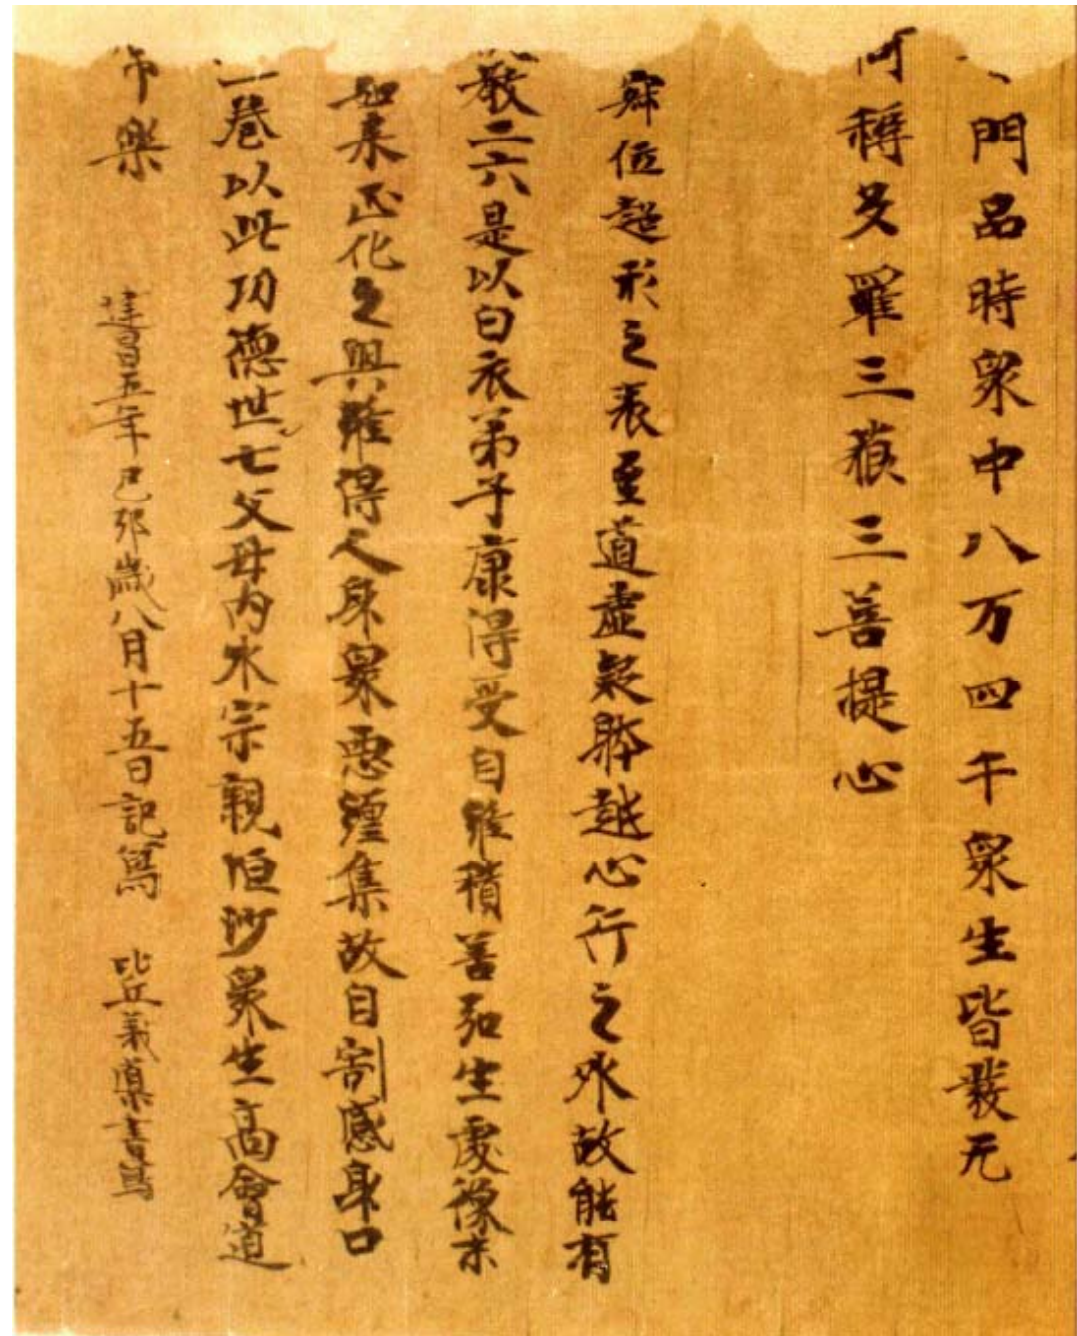 門品時眾中八万四千眾生皆發无
阿耨多羅三藐三菩提心
位超形之表至道虛凝躰越心行之外故能有
教二六是以白衣弟子康得受自惟積善生處像末
如來正化之興雖得人身眾惡纏集故自割感身口
一卷以此功德世七父母內外宗親恒沙眾生高會道
常樂 建昌五年己卯歲八月十五日記寫 比丘義導書寫